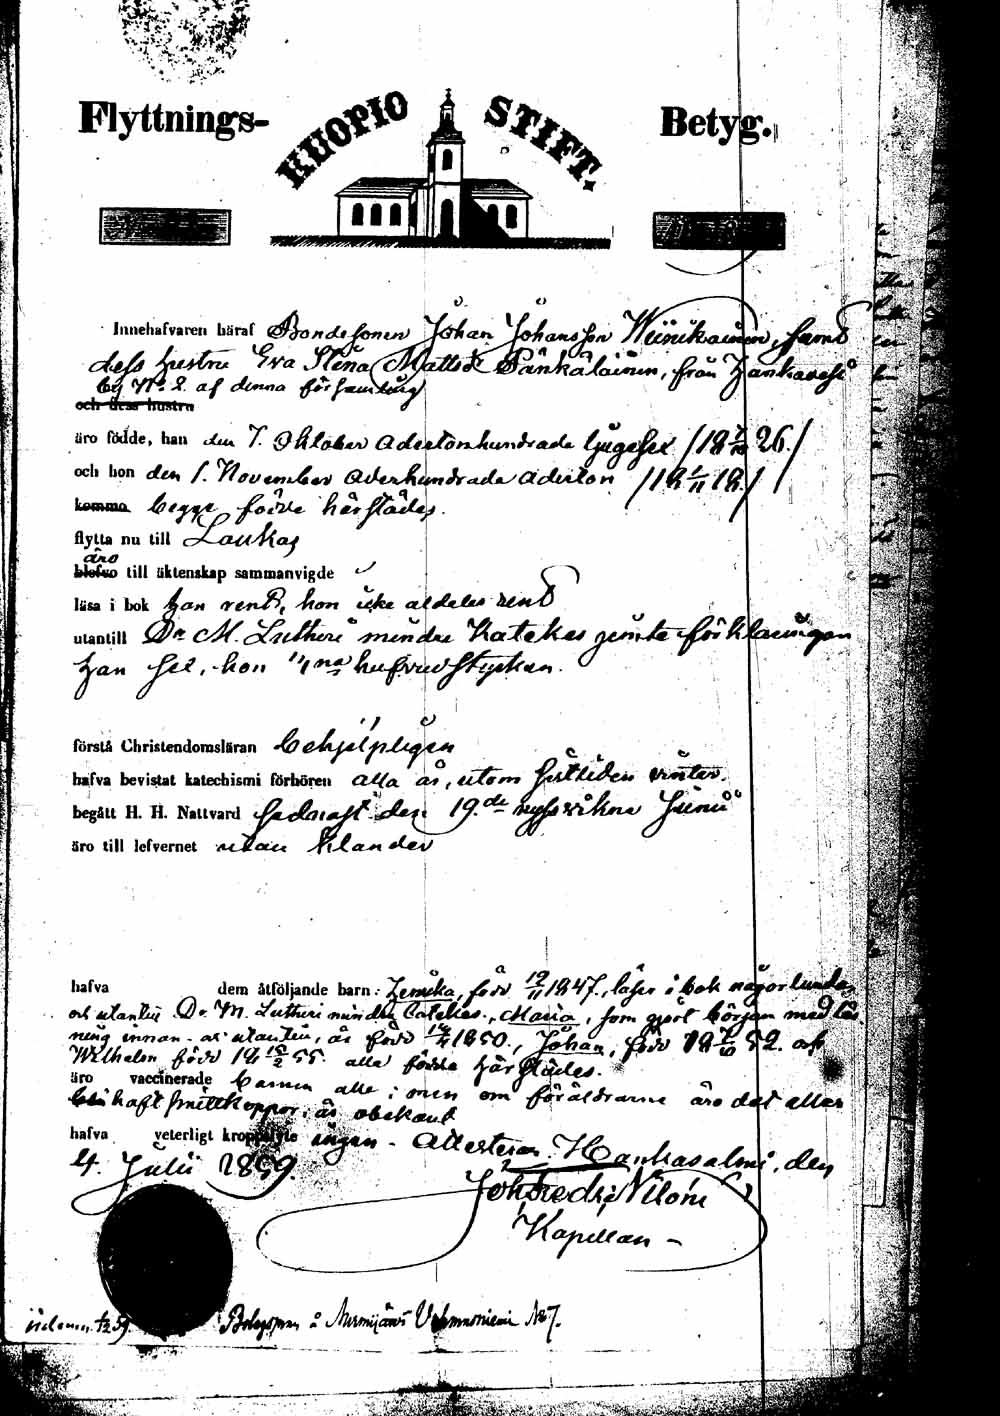 Flyttnings- KUOPIO STIFT. Betyg.
Innehafvaren häraf Bondesonen Johan Johansson Wiinikainen, samt
dess hustru Eva Stena Mattsd Pänkäläinen, från Hankavesi
by No 2. af denna församling
och dess hustru
äro födde, han den 7. Oktober adertonhundrade tjugesex /18 7/10 26./
och hon den 1. November aderhundrade aderton /18 1/11 18./
komma begge födde härstädes.
flytta nu till Laukas
äro
blefvo till äktenskap sammanvigde
läsa i bok han rent, hon icke aldeles rent
utantill Dr M. Lutheri mindre Katekes jemte förklaringen
han hel, hon hufvudstycken.
förstå Christendomsläran behjelpligen
hafva bevistat katechismi förhören alla år, utom sistliden vinter.
begått H. H. Nattvard sednast den 19.de nyssvikne Junii
äro till lefvernet utan klander
hafva dem åtföljande barn: Henrika, född 19/11 1847., läser i bok någorlunda
och utantill Dr M. Lutheri mindre Catekes., Maria, som gjort början med läs-
ning innan- o. utantill, är född 1850., Johan, född 18 52. och
Wilhelm född 18 15/2 55. alla födde härstädes.
äro vaccinerade barnen alla; men om föräldrarne äro det eller
haft smittkoppor, är obekant
hafva veterligt kroppslyte ingen - Attesterar. Hankasalmi, den
4. Julii 1859.
Joh: Fredr: Nilóni
Kapellan -
Bolagsman å Nurmijärvi No 7.